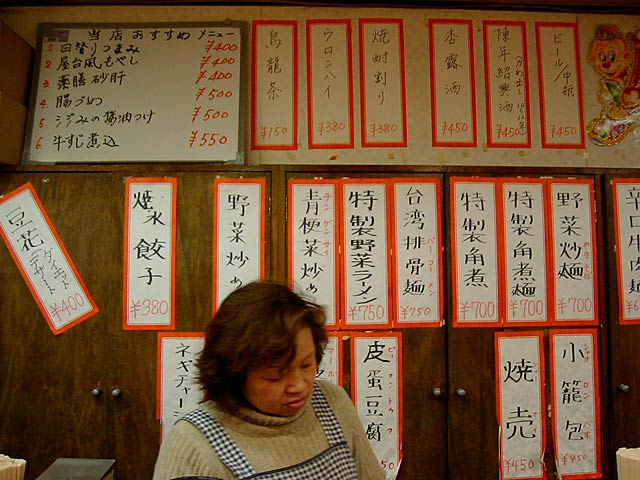 当店おすすめメニュー
1. 日替りつまみ ¥400
2. 屋台風もやし ¥400
3. 薬膳砂肝 ¥400
4. 腸づめ ¥500
5. シジみの醤油つけ ¥500
6. 牛すじ煮込 ¥550
烏龍茶 ¥150
ウロンハイ ¥380
焼酎割り ¥380
杏露酒 ¥450
陳年紹興酒 ¥450
ビール/中瓶 ¥450
豆花 ¥400
焼水餃子 ¥380
野菜炒め
青梗菜炒め
チンゲンサイ
特製野菜ラーメン ¥750
台湾排骨麺 ¥750
パーコーメン
特製角煮 ¥700
特製角煮麺 ¥700
野菜炒麺 ¥700
辛口牛肉
ネギチャー
皮蛋豆腐
ピータントウフ
焼売 ¥450
小籠包 ¥450
ショウロンパオ